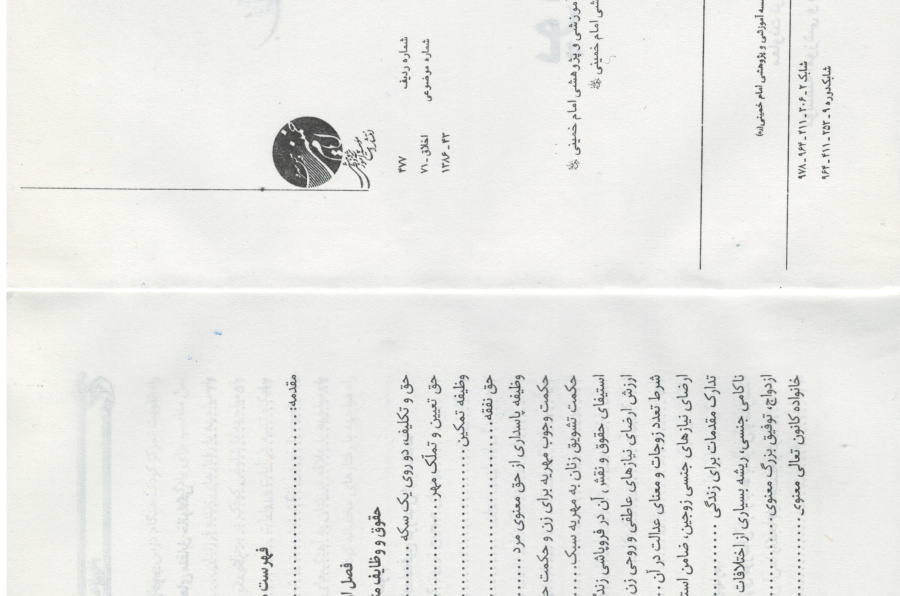 شماره ردیف ۴۷۷
شماره موضوعی اخلاق ـ ۷۱
۱۳۸۶ ـ ۴۳
موزشی و پژوهشی امام خمینی
شی امام خمینی
سه آموزشی و پژوهشی امام خمینی(ره)
شابک ۲ ـ ۲۰۶ ـ ۴۱۱ ـ ۹۶۴ ـ ۹۷۸
شابک‌دوره ۹ ـ ۲۵۲ ـ ۴۱۱ ـ ۹۶۴
فهرست
مقدمه:
فصل
حقوق و وظایف
حق و تکلیف، دو روی یک سکه
حق تعیین و تملّک مهر
وظیفه تمکین
حق نفقه
وظیفه پاسداری از حق معنوی مرد
حکمت وجوب مهریه برای زن و حکمت
حکمت تشویق زنان به مهریه سبک
استیفای حقوق و نقش آن در فروپاشی
ارزش ارضای نیازهای عاطفی و روحی زن
شرط تعدد زوجات و معنای عدالت در آن
ارضای نیازهای جنسی زوجین، ضامن
تدارک مقدمات برای زندگی
ناکامی جنسی، ریشه بسیاری از اختلافات
ازدواج، توفیق بزرگ معنوی
خانواده کانون تعالی معنوی